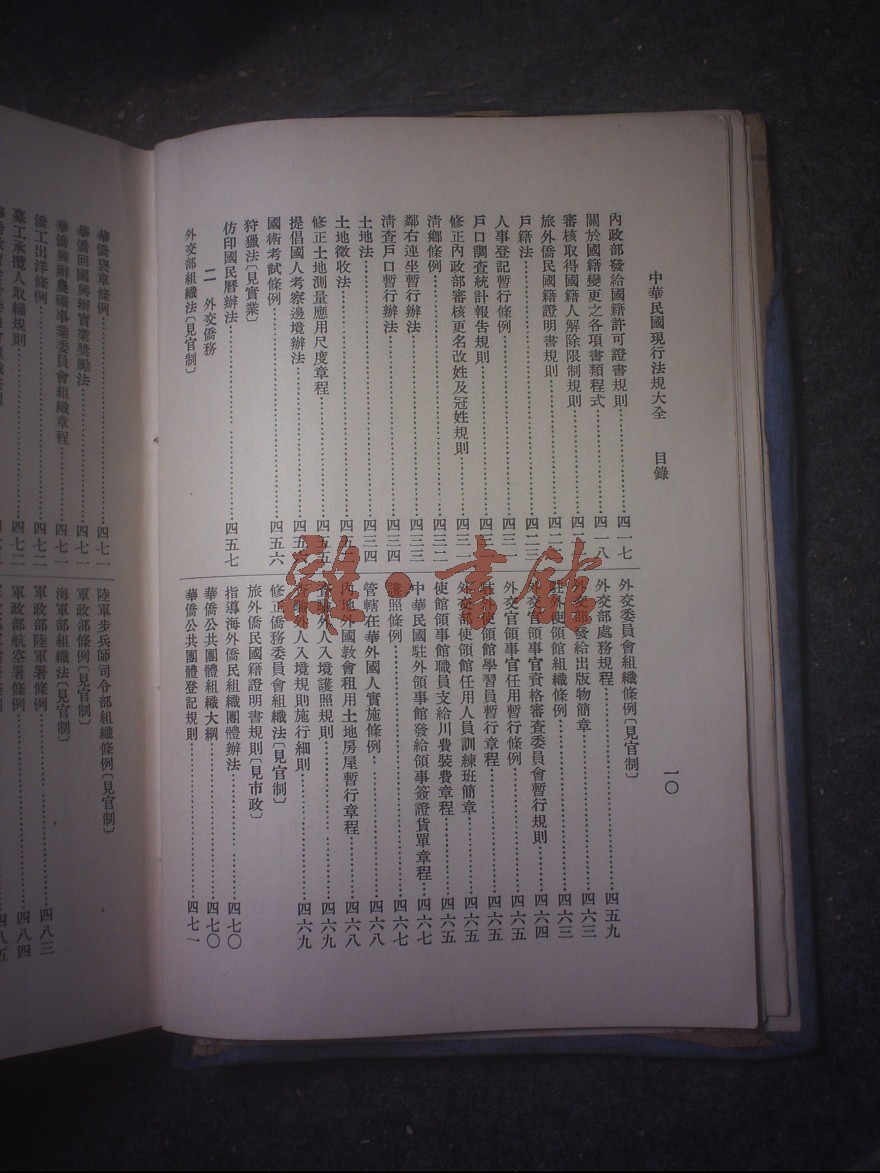 中華民國現行法規大全 目錄 一〇
內政部發給國籍許可證書規則……四一七
關於國籍變更之各項書類程式……四一八
審核取得國籍人解除限制規則……
旅外僑民國籍證明書規則……
戶籍法……四二三
人事登記暫行條例……四三一
戶口調查統計報告規則……
修正內政部審核更名改姓及冠姓規則……
清鄉條例……四三二
鄰右連坐暫行辦法……四三三
清查戶口暫行辦法……四三四
土地法……四三四
土地徵收法……
修正土地測量應用尺度章程……四五五
提倡國人考察邊境辦法……四五六
國術考試條例……四五六
狩獵法〔見實業〕
仿印國民曆辦法……四五七
二 外交僑務
外交部組織法〔見官制〕
外交委員會組織條例〔見官制〕
外交部處務規程……四五九
外交部發給出版物簡章……四六三
駐外使領館組織條例……四六三
外交官領事官資格審查委員會暫行規則……四六四
外交官領事官任用暫行條例……四六五
駐外使領館學習員暫行章程……四六五
外交部使領館任用人員訓練班簡章……四六五
使館領事館職員支給川費裝費章程……四六五
中華民國駐外領事館發給領事簽證貨單章程……四六七
護照條例……四六七
管轄在華外國人實施條例……四六八
內地外國教會租用土地房屋暫行章程……四六八
查驗外人入境護照規則……四六九
查驗外人入境規則施行細則……四六九
修正僑務委員會組織法〔見官制〕
旅外僑民國籍證明書規則〔見市政〕
指導海外僑民組織團體辦法……四七〇
華僑公共團體組織大綱……四七〇
華僑公共團體登記規則……四七一
華僑褒章條例……四七一
華僑回國興辦實業獎勵法……四七一
華僑興辦農礦事業委員會組織章程……四七一
僑工出洋條例……四七二
募工承攬人取締規則……四七二
陸軍步兵師司令部組織條例〔見官制〕
軍政部條例〔見官制〕
海軍部組織法〔見官制〕
軍政部陸軍署條例……四八三
軍政部航空署條例……四八四
四八五
雜·書館